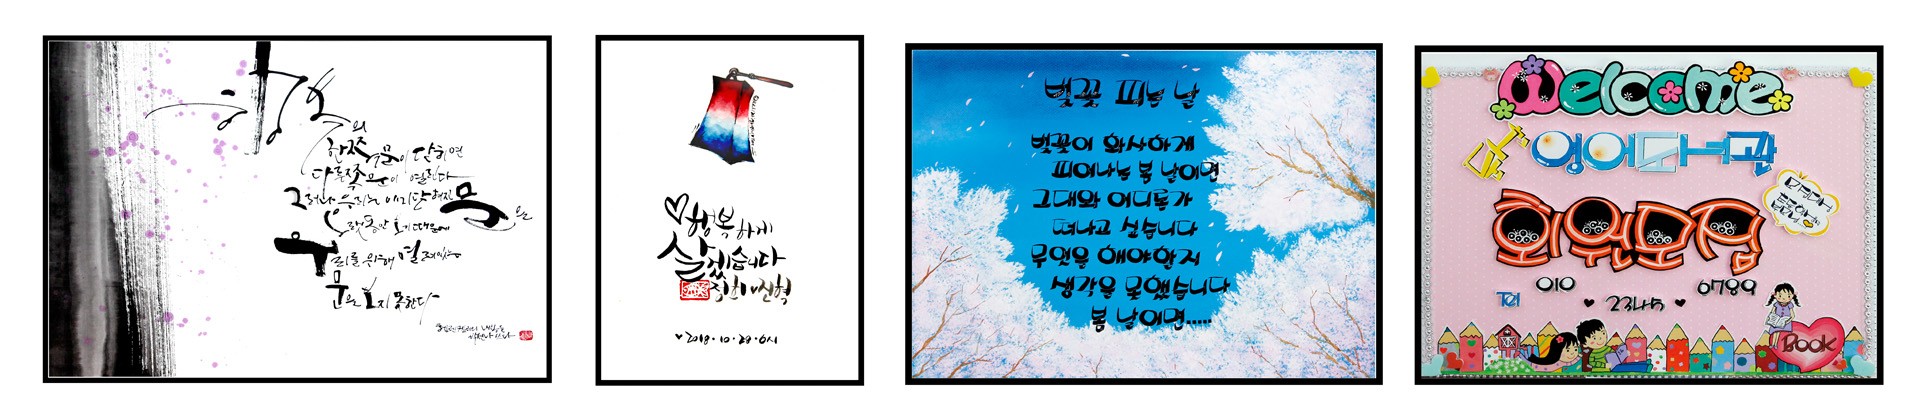 행복의
한쪽 문이 닫히면
다른쪽 문이 열린다
그러나 우리는 매번 닫혀진 문을
오랫동안 보기 때문에
우리를 위해 열려있는
문을 보지 못한다
행복하게
살겠습니다
2018.10.28.6시
벚꽃 피는 날
벚꽃이 화사하게
피어나는 봄 날이면
그대와 어디론가
떠나고 싶습니다
무엇을 해야할지
생각을 못했습니다
봄 날이면.....
welcome
영어도서관
회원모집
010
2345
6789
Book